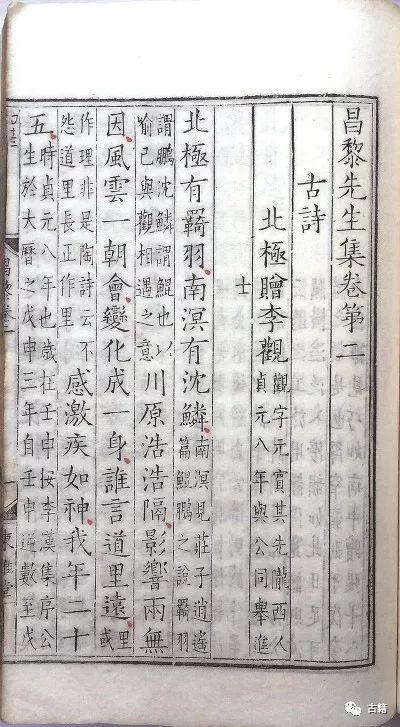 昌黎先生集卷第二
古詩
北極贈李觀觀字元賓其先隴西人貞元八年與公同舉進
士
北極有羇羽南溟有沈鱗南溟見莊子逍遙篇鯤鵬之說羇羽
謂鵬沈鱗謂鯤也以喻己與觀相遇之意川原浩浩隔影響兩無
因風雲一朝會變化成一身誰言道里遠里或
作理非是陶詩云不怨道里長正作里感激疾如神我年二十
五時貞元八年也歲在壬申按李漢集序公生於大曆之戊申三年自壬申逆數至戊
東雅堂
古籍